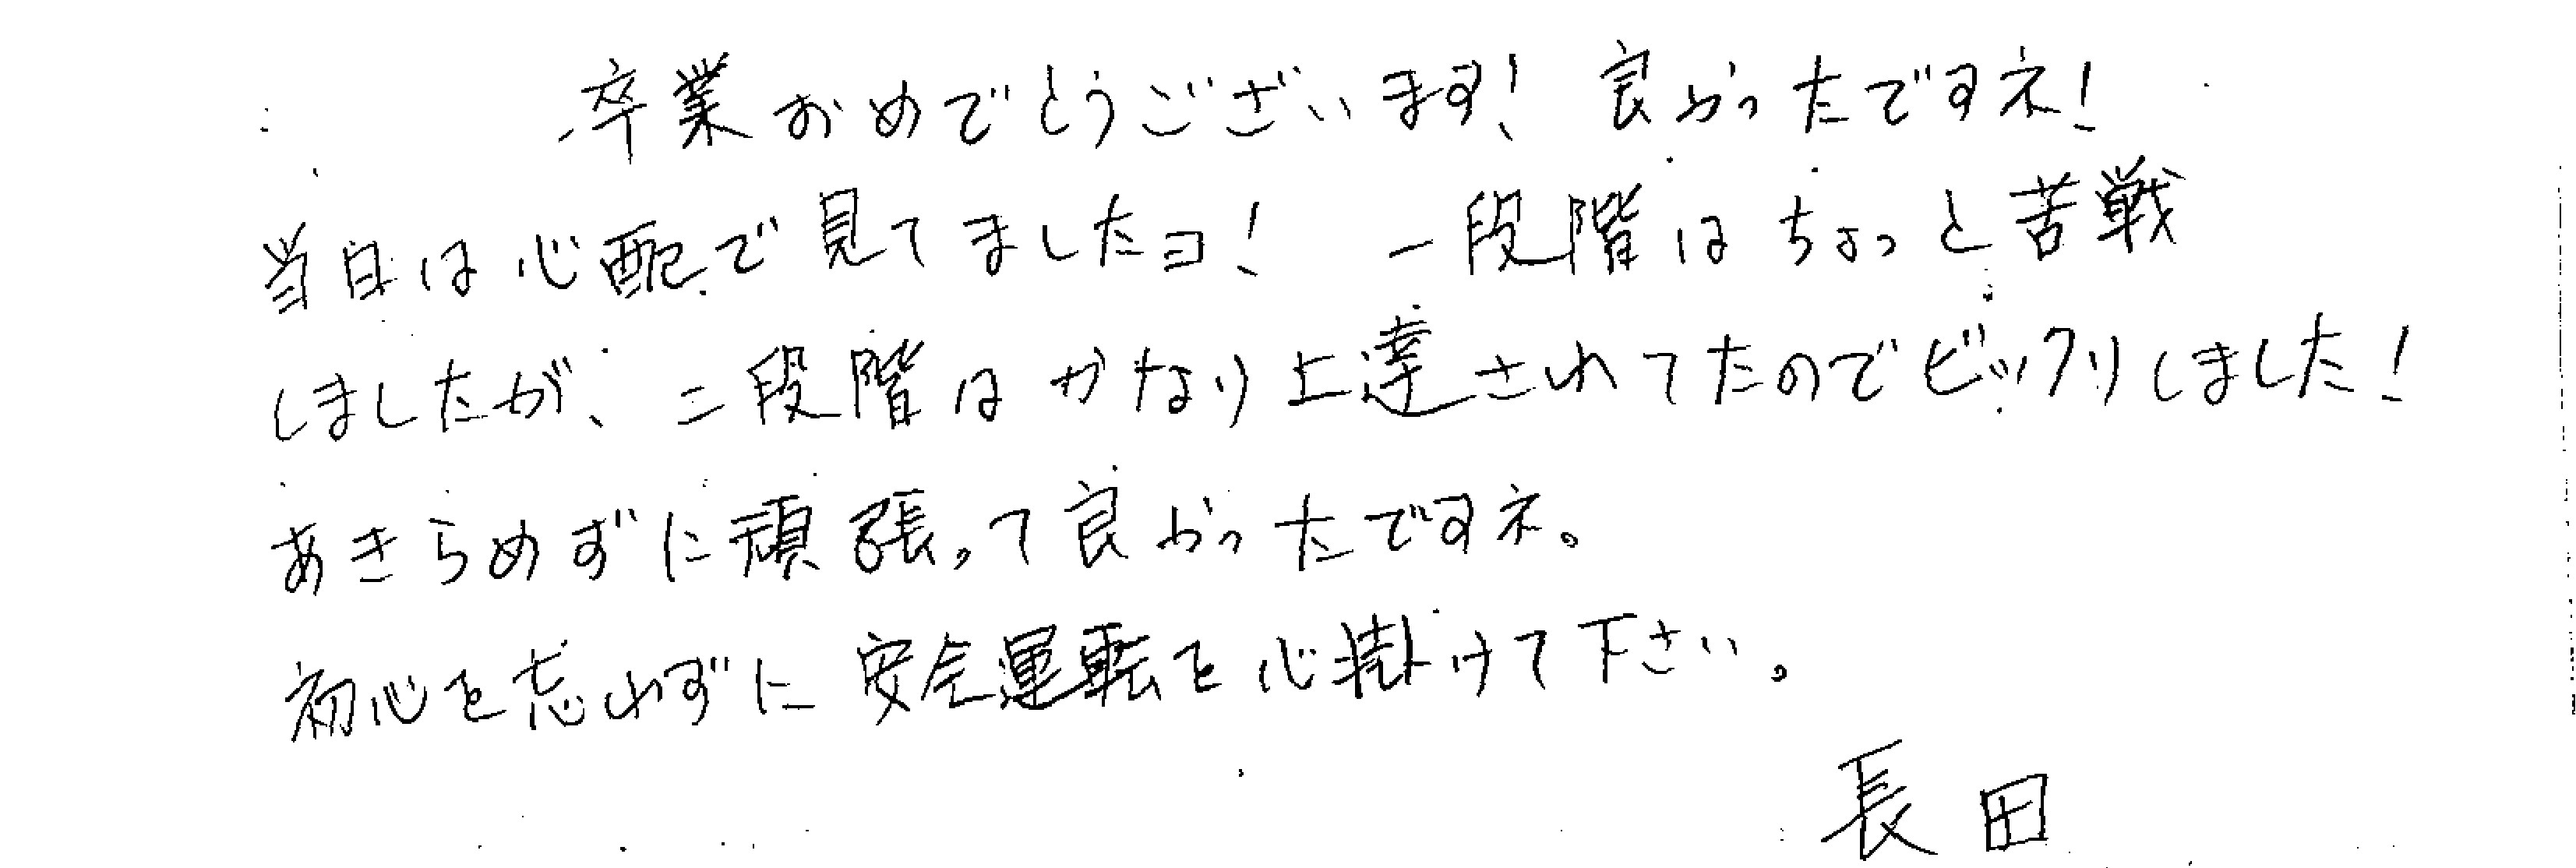 卒業おめでとうございます！良かったですネ！
当日は心配で見てましたヨ！一段階はちょっと苦戦
しましたが、二段階はかなり上達されてたのでビックリしました！
あきらめずに頑張って良かったですネ。
初心を忘れずに安全運転を心掛けて下さい。
長田